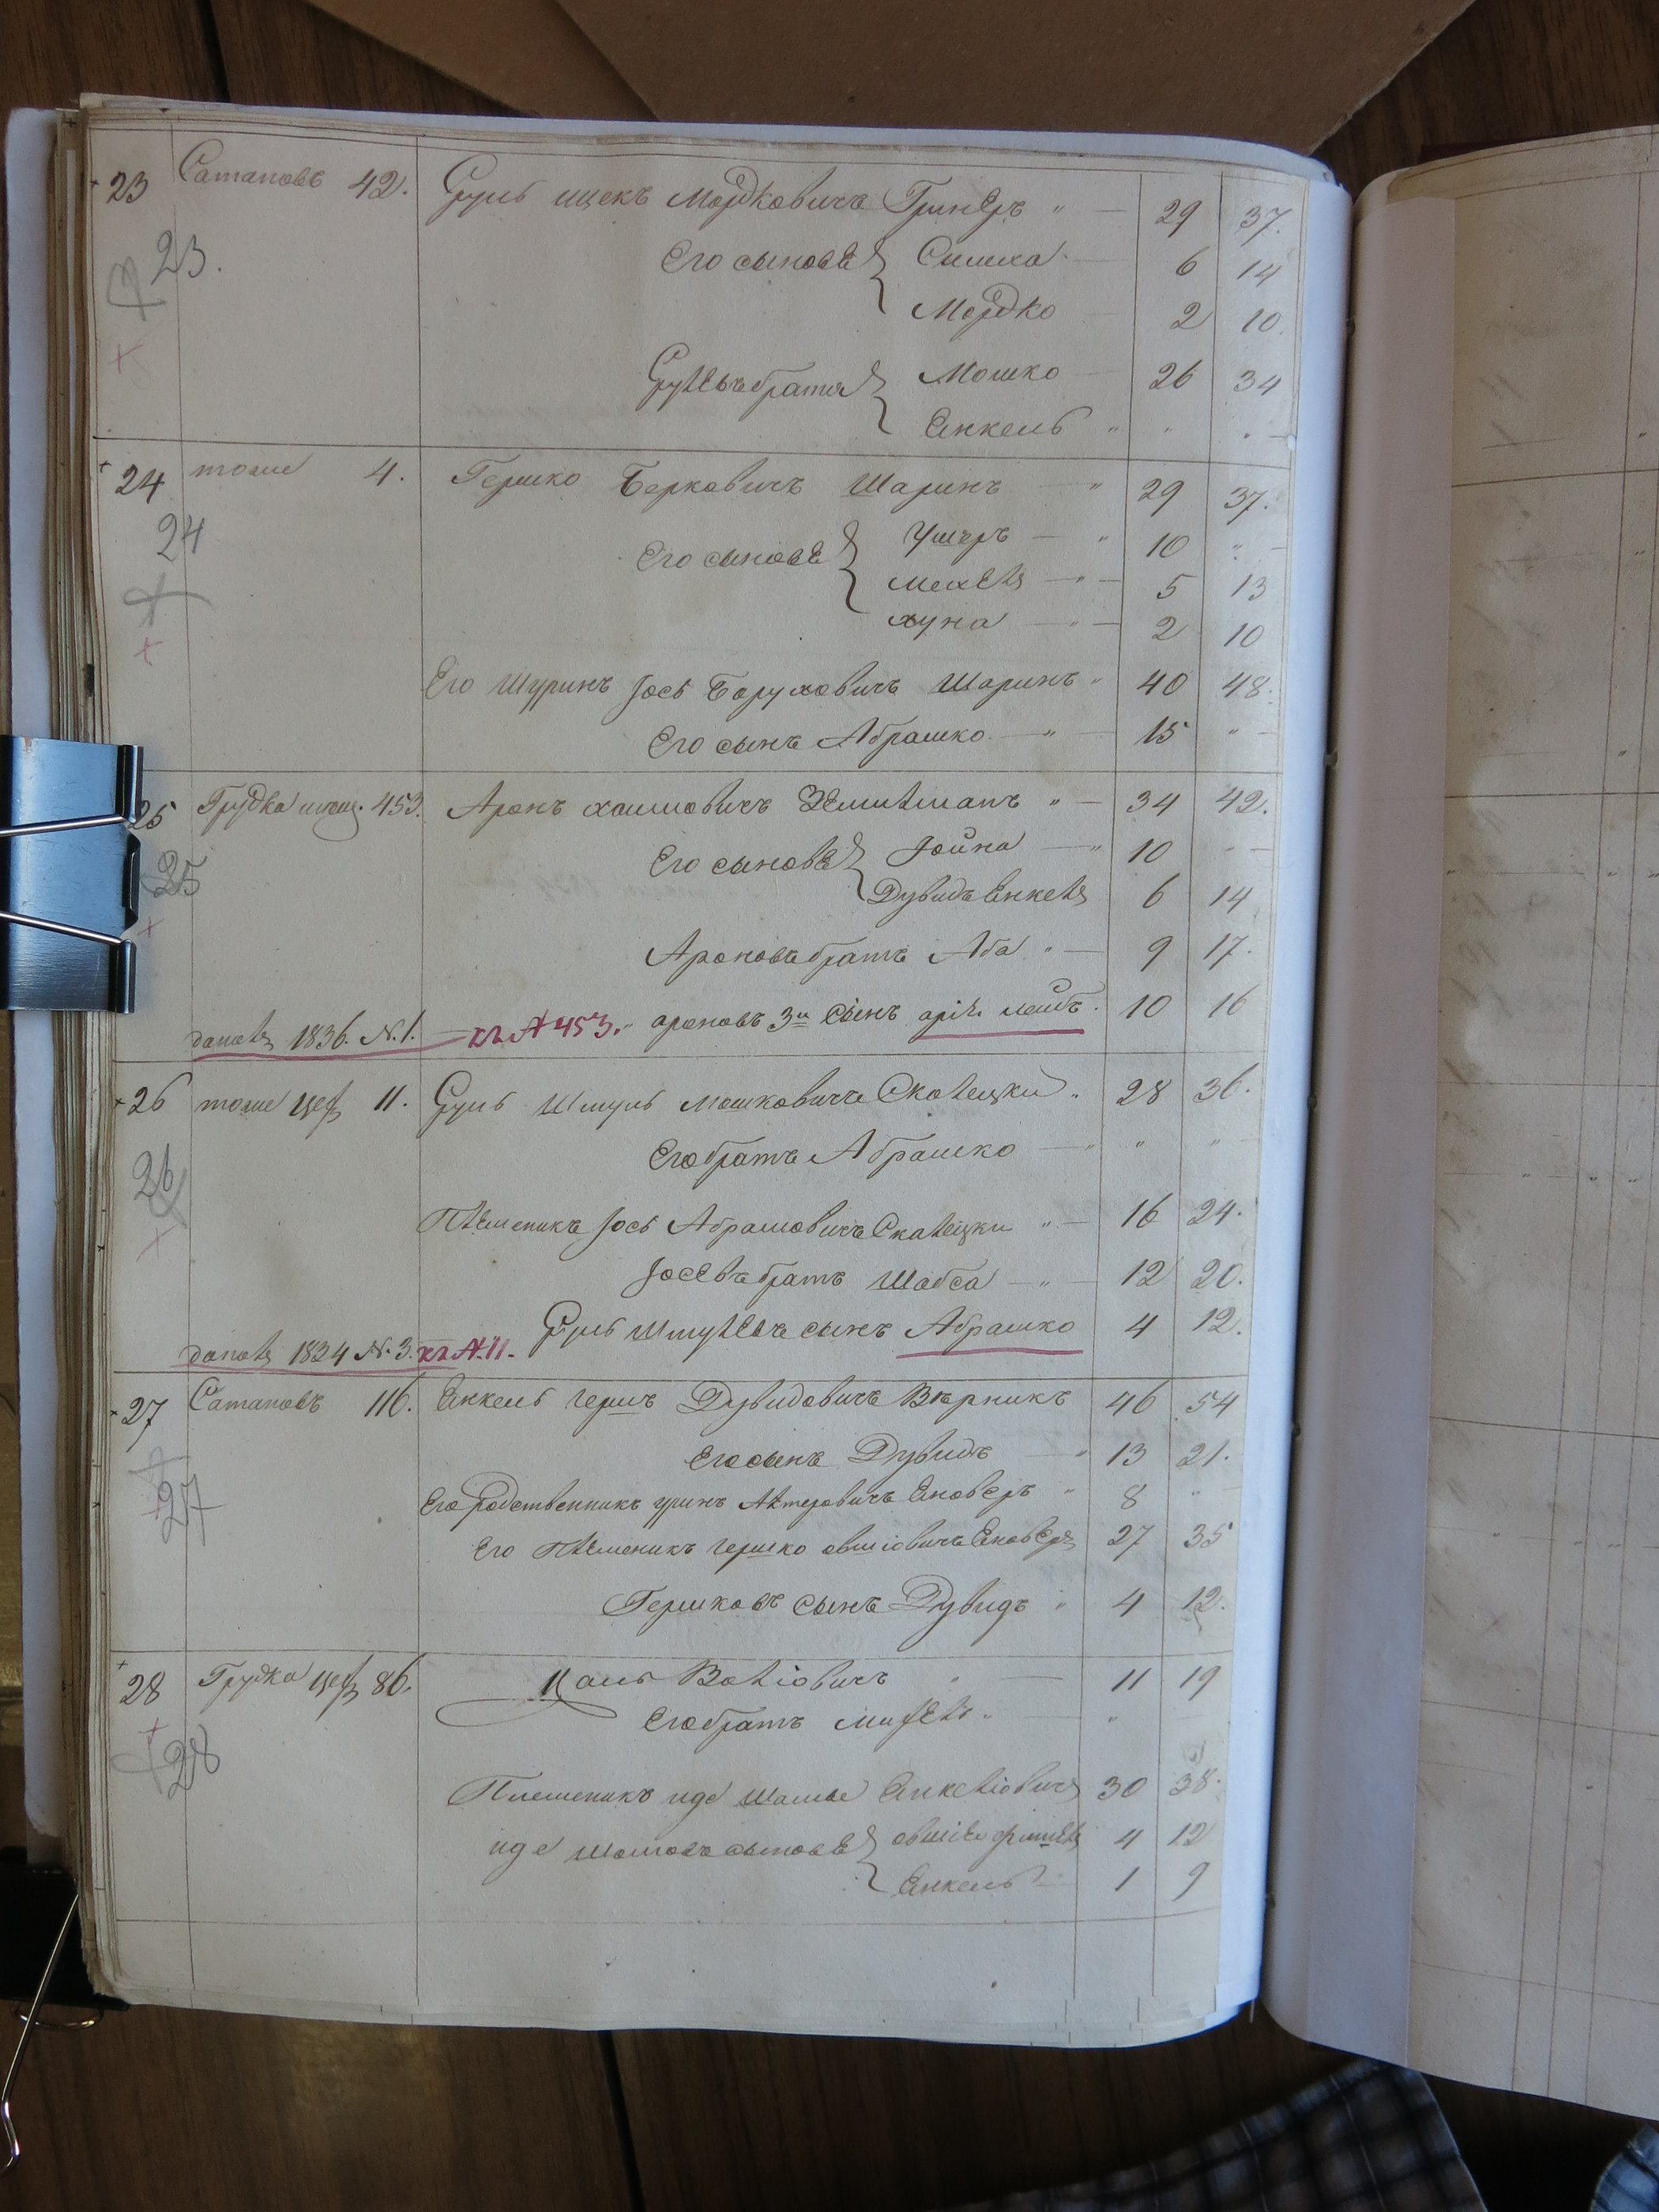 23 Сатановъ 42. Сруль ицекъ Мордковичъ Гринеръ " — 29 37.
23. Его сыновѣ { Симха — 6 14
Мордко — 2 10.
Срулевъ братя { Мошко — 26 34
Енкель " " "
24 тоже 4. Гершко Берковичъ Шаринъ — " 29 37.
24 Его сыновѣ { Ушеръ — " 10 " —
Мехель — " — 5 13
хуна — " — 2 10
Его Шуринъ Іось Боруховичъ Шаринъ " 40 48.
Его сынъ Абрашко — " — 15 " —
25 Грудка 453. Аронъ хаимовичъ " — 34 42.
25 Его сыновѣ { Іойна — " 10 " —
Дувидъ Енкель 6 14
Ароновъ братъ Аба " — 9 17.
1836. N. 1. — къ N 453. " ароновъ 3й сынъ арiе леибъ. 10 16
26 тоже цеф 11. Сруль Шмуль Мошковичъ Скалецки " 28 36.
26 Его братъ Абрашко — " " "
Племеникъ Іось Абрамовичъ Скалецки " — 16 24.
Іосевъ братъ Шабса — " — 12 20.
Сруль Шмулевъ сынъ Абрашко 4 12.
1834 N. 3. къ N. 11.
27 Сатановъ 116. Енкель гершъ Дувидовичъ Вѣрникъ 46 54
Его сынъ Дувидъ — " 13 21.
27 Его родственникъ Алтеровичъ Еноверъ " 8 " —
Его Племеникъ гершко овшіовичъ Еноверъ 27 35
Гершковъ сынъ Дувидъ " 4 12.
28 Грудка цеф 86. Волiовичъ " — 11 19
28 Его братъ " — "
Племеникъ иде Енкелiовичъ 30 38.
иде сыновѣ { 4 12
Енкель — 1 9